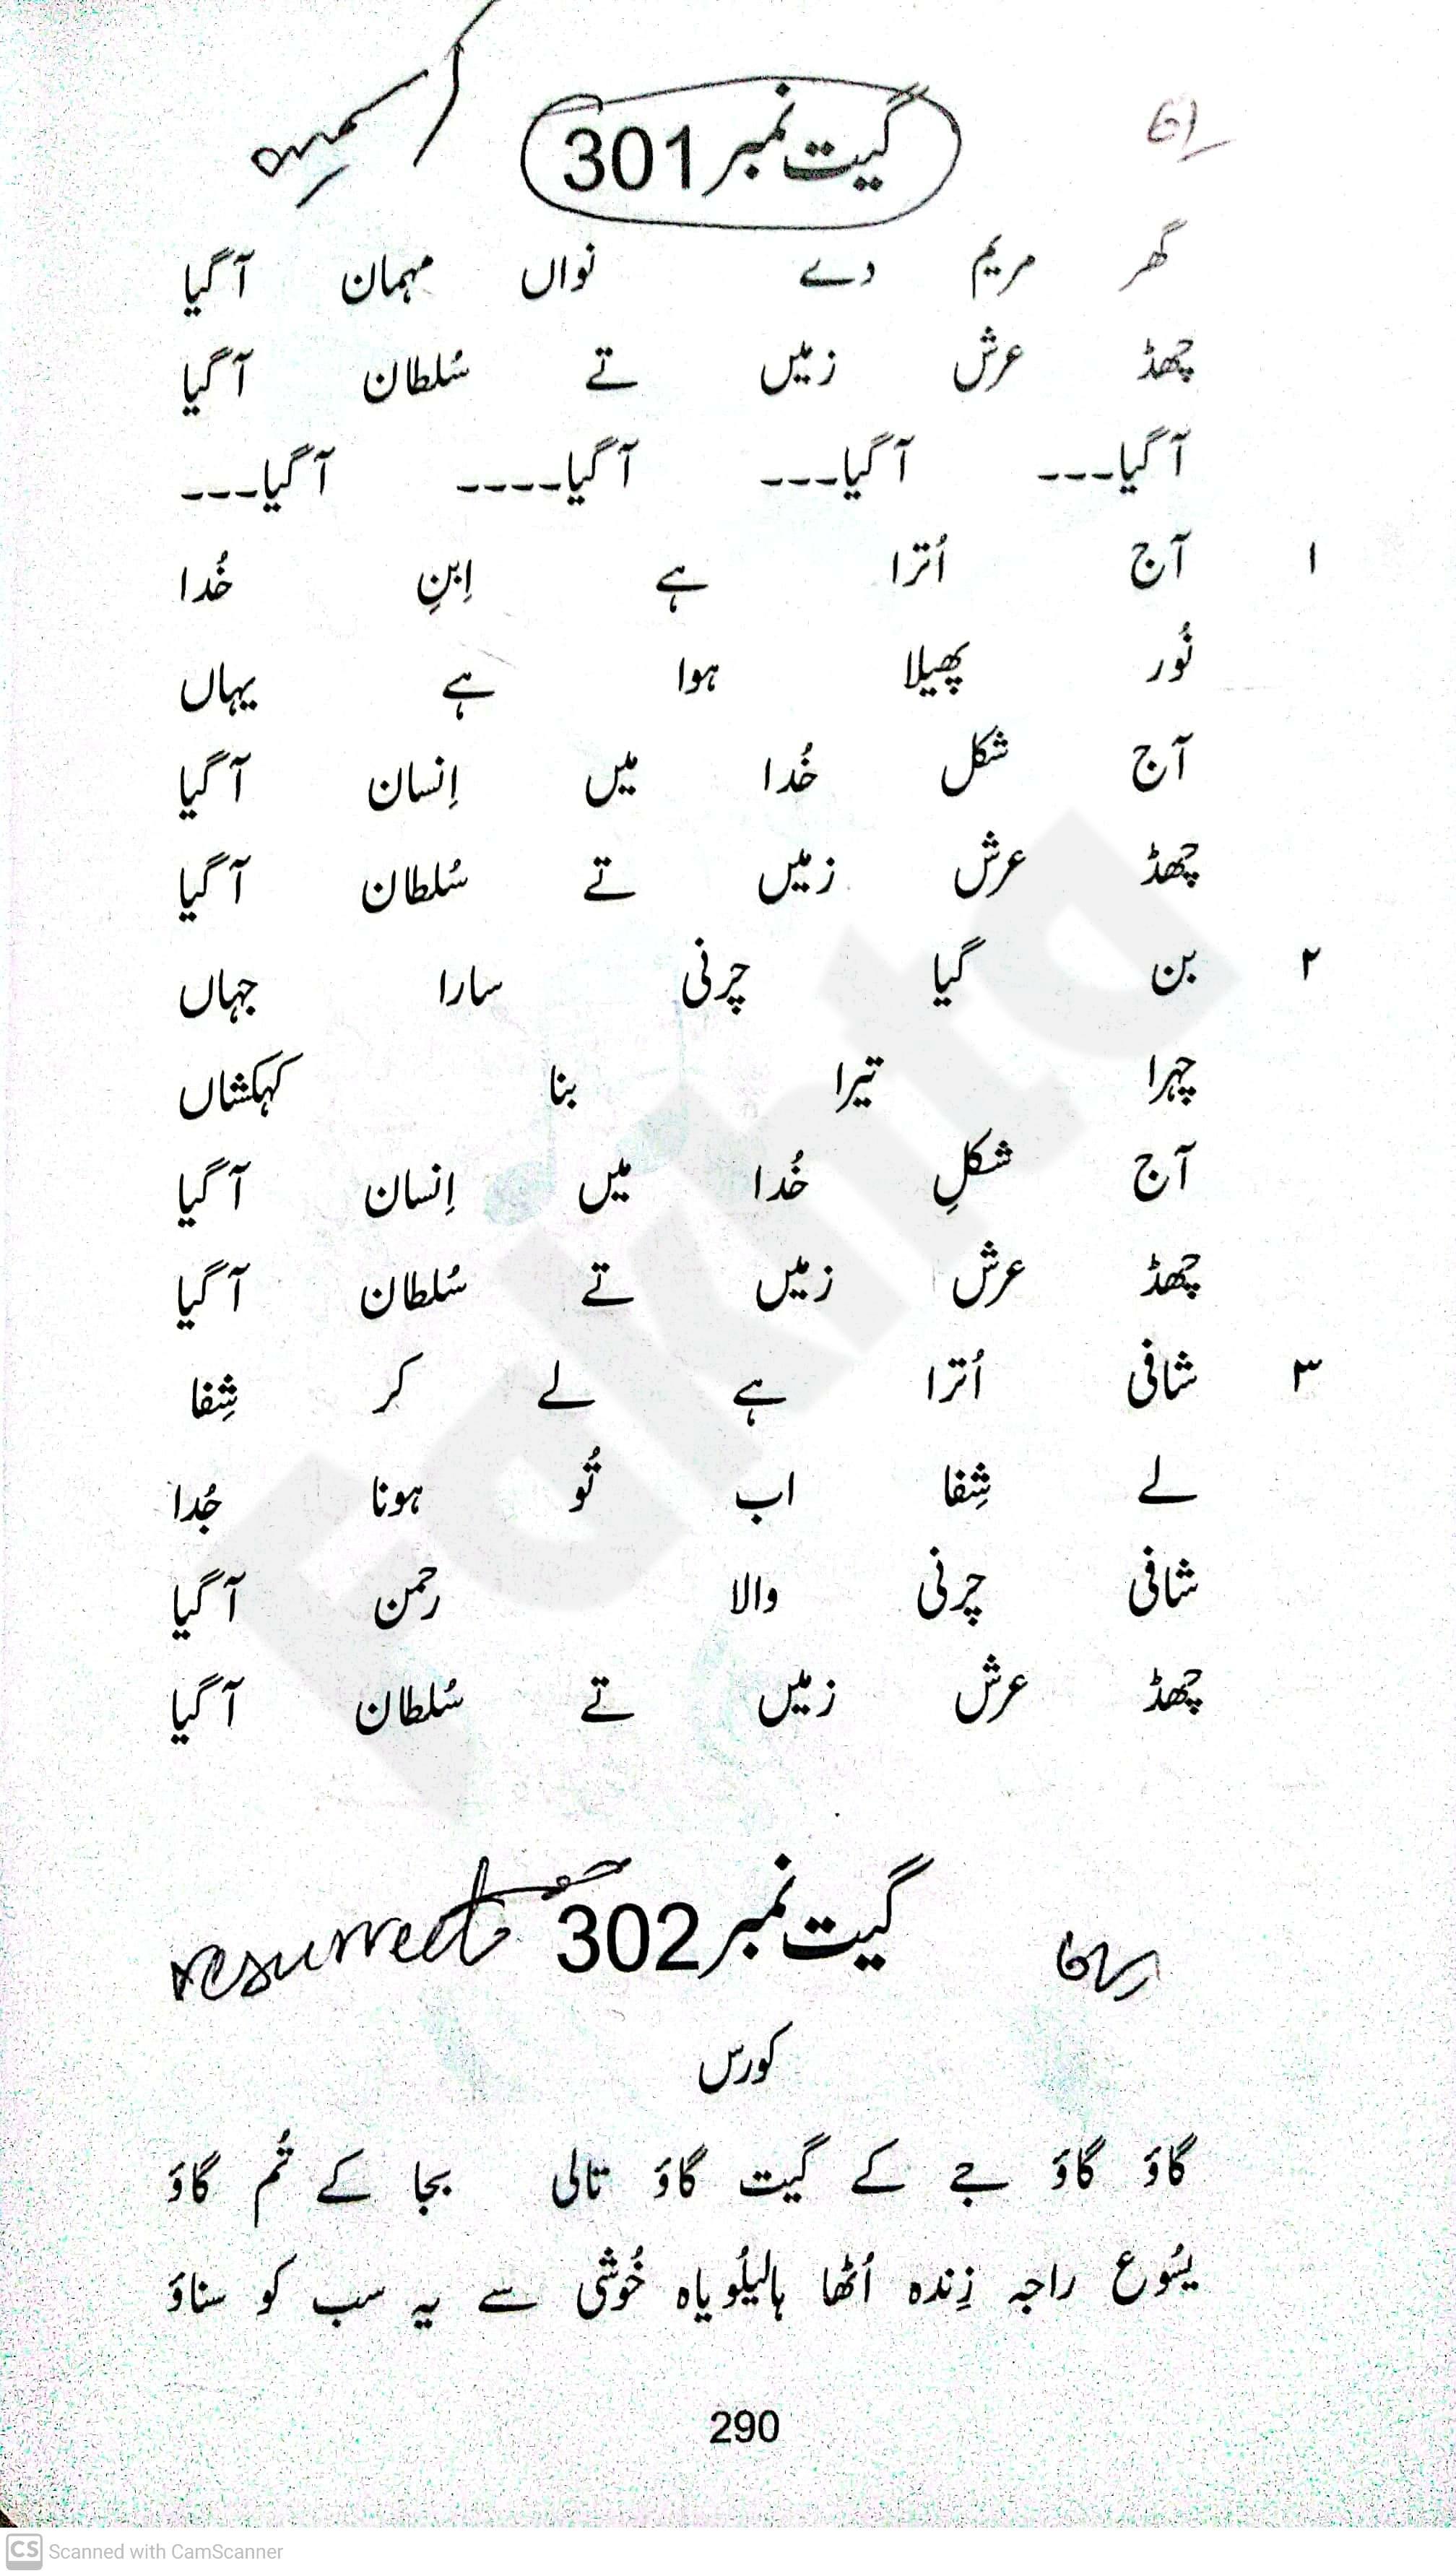 گیت نمبر 301
گھر مریم دے نواں مہمان آ گیا
چھڈ عرش زمیں تے سُلطان آ گیا
آ گیا--- آ گیا--- آ گیا---- آ گیا---
۱ آج اُترا ہے اِبنِ خُدا
نُور پھیلا ہوا ہے یہاں
آج شکل خُدا میں اِنسان آ گیا
چھڈ عرش زمیں تے سُلطان آ گیا
۲ بن گیا چرنی سارا جہاں
چہرا تیرا بنا کہکشاں
آج شکلِ خُدا میں اِنسان آ گیا
چھڈ عرش زمیں تے سُلطان آ گیا
۳ شافی اُترا ہے لے کر شِفا
لے شِفا اب تُو ہونا جُدا
شافی چرنی والا رحمن آ گیا
چھڈ عرش زمیں تے سُلطان آ گیا
resurrect گیت نمبر 302
کورس
گاؤ گاؤ جے کے گیت گاؤ تالی بجا کے تُم گاؤ
یسُوع راجہ زِندہ اُٹھا ہالیلُویاہ خُوشی سے یہ سب کو سناؤ
290
Fakhta
CS Scanned with CamScanner